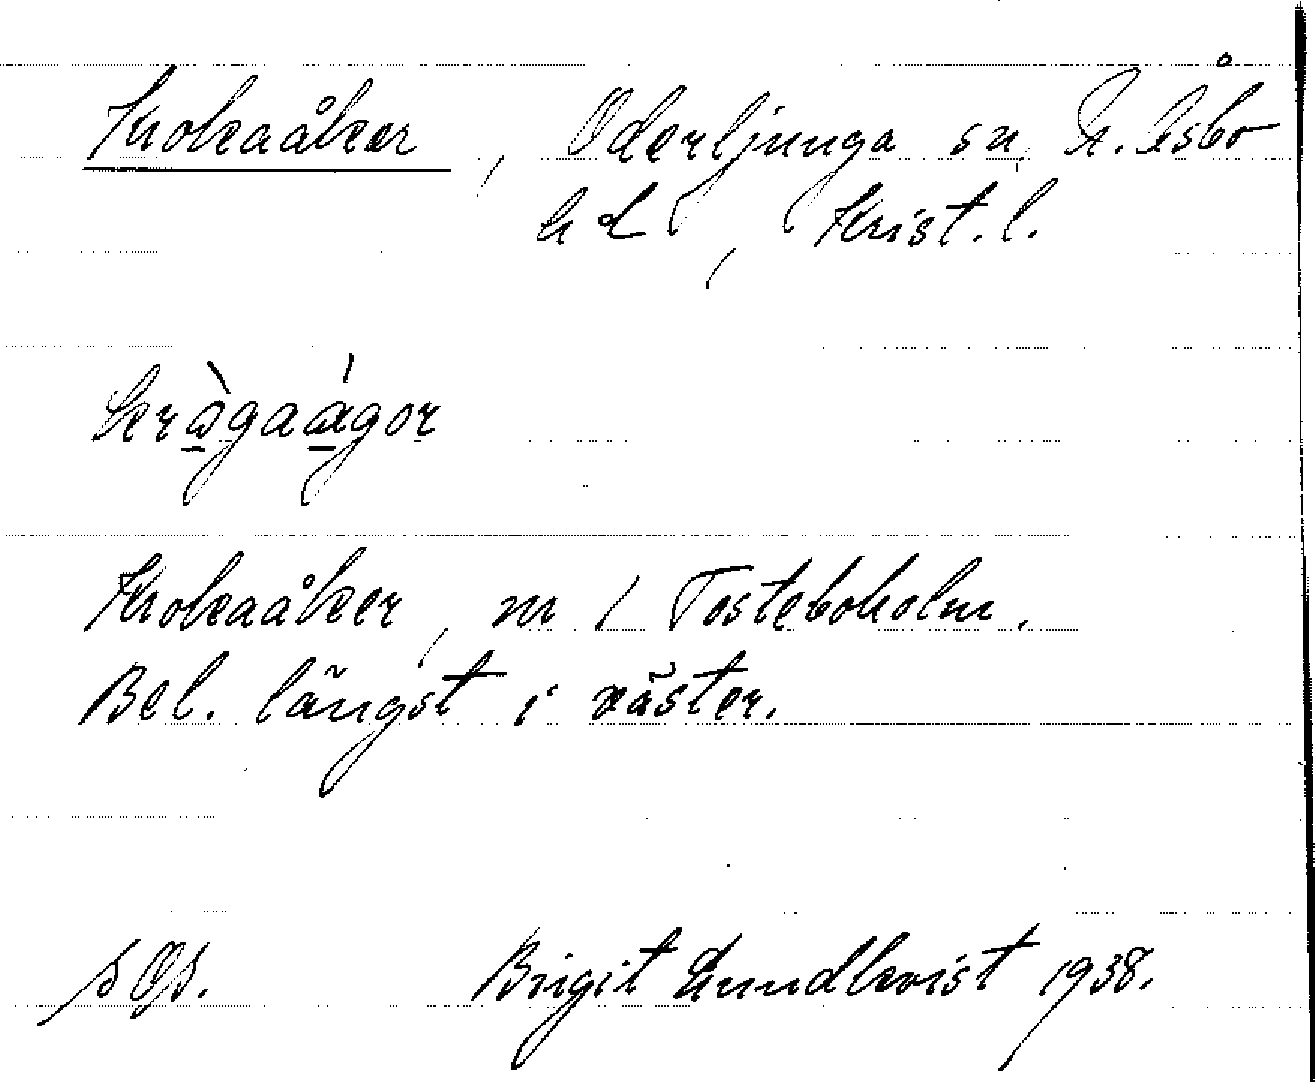 Krokaåker, Oderljunga sn, N. Åsbo
hd, Krist. l.
kràgaágor
Krokaåker, nr 1 Tosteboholm.
Bel. längst i väster.
Birgit Lundkvist 1938.